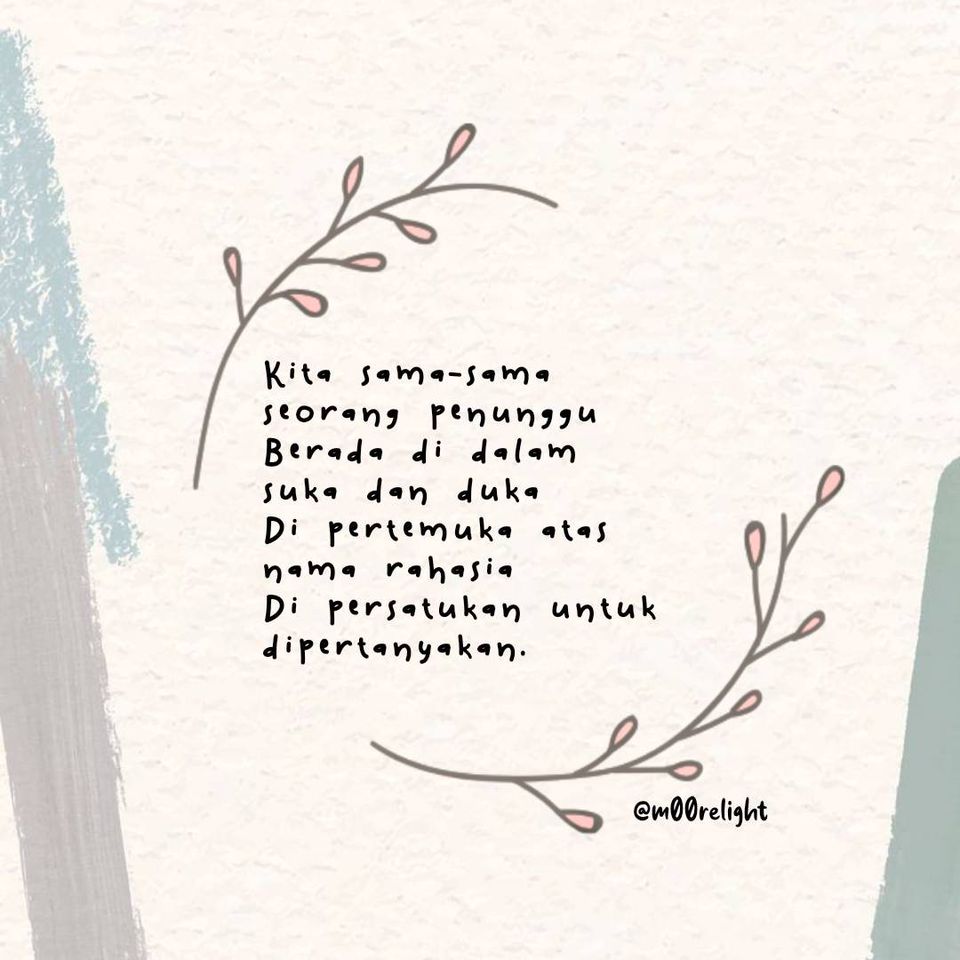 Kita sama-sama
seorang penunggu
Berada di dalam
suka dan duka
Di pertemuka atas
nama rahasia
Di persatukan untuk
dipertanyakan.
@m00relight